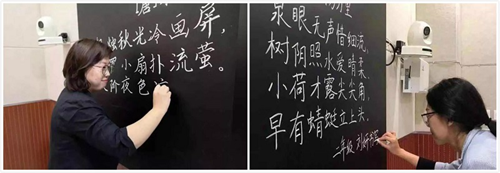 烛秋光冷画屏，
小扇扑流萤。
阶夜色
泉眼无声惜细流，
树阴照水爱晴柔。
小荷才露尖尖角，
早有蜻蜓立上头。
二年级